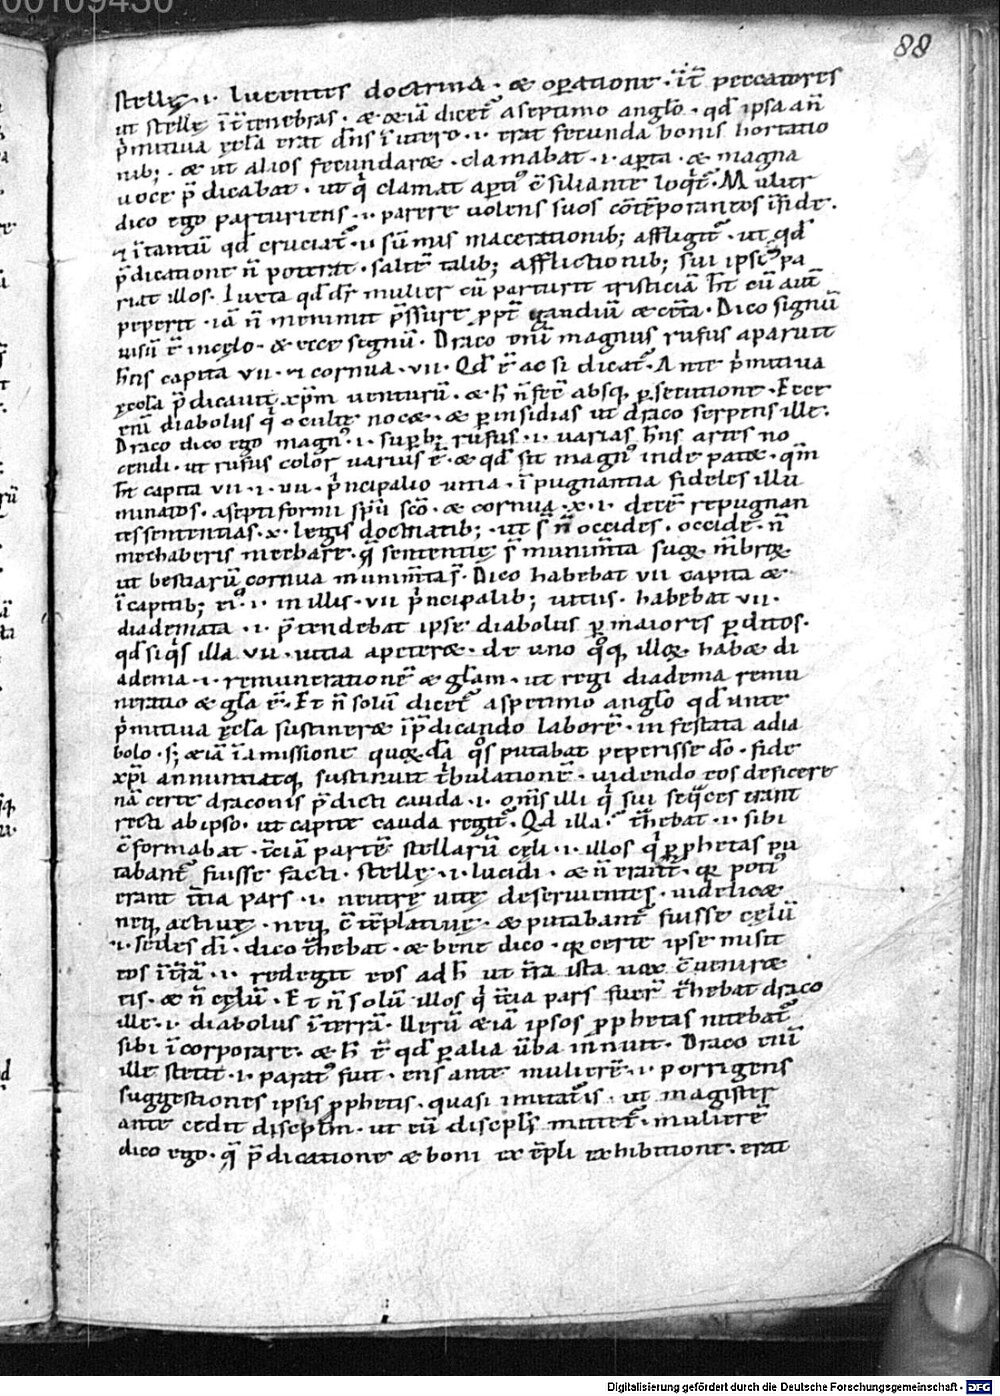 00109430
88
stellę .i. lucentes doctrina . & oꝑatione . int̄ peccatores
ut stellę ī t̄ tenebras . & &iā dicet̄ a septimo anglo . qd ipsa an̄
p̄mitiua ęccła erat dn̄s ī utero .i. erat fecunda bonis hortatio
nib; . & ut alios fecundar& . clamabat .i. aꝑta . & magna
uoce p̄dicabat . ut q̄ clamat aꝑtū c̄siliante loq̄t̄ . Mulier
dico ego parturiens .i. parere uolens suos c̄tēporaneos in fide .
& ī tantū qd cruciat̄ .i. sūmis macerationib; affligit̄ . ut qd
p̄dicatione n̄ poterat . saltē talib; afflictionib; sui ipsi pa
riat illos . Iuxta qd dr̄ mulier cū parturit tristiciā h̄t cū aut̄
peperit . iā n̄ meminit p̄ssure ꝓpt̄ gaudiū & cet̄a . Dico signū
uisū ē in cęlo . & ecce signū . Draco  magnus rufus aparuit
h̄ns capita VII . & cornua . VII . Qd ē ac si dicat̄ . Ante p̄mitiua
ęccła p̄dicauit xp̄m uenturū . & h̄ n̄ fec̄ absq; ꝑsecutione . Ecce
eni diabolus q̄ oculte noc& . & ꝑ insidias ut draco serpens ille .
Draco dico ego magn; .i. suꝑb; rufus .i. uarias h̄ns artes no
cendi . ut rufus color uarius ē . & qd sit magn; inde pat& . qm̄
h̄t capita VII .i. VII . p̄ncipalio uitia . ī pugnantia fideles illu
minatos . a septiformi sp̄u sc̄o . & cornua . x .i. decē repugnan
tes sententias . x . legis docmatib; . ut s̄ n̄ occides . occide . n̄
mechaberis mechare . q̄ sententię s̄ munim̄ta suoꝝ m̄broꝝ
ut bestiarū cornua munim̄ta s̄ . Dico habebat VII capita &
ī capitib; ei; .i. in illis . VII p̄ncipalib; uitiis . habebat VII .
diademata .i. p̄tendebat ipse diabolus ꝑ maiores ꝑditos .
qd si q̄s illa VII . uitia apeter& . de uno q̄q; illoꝝ hab& di
adema .i. remunerationē & głam . ut regi diadema remu
neratio & gła ē . Et n̄ solū dicet̄ a septimo anglo qd ante
p̄mitiua ęccła sustiner& ī p̄dicando laborē . infestata a dia
bolo . s; &iā ī amissione quoꝝdā q̄s putabat peperisse dō . fide
xp̄i annuntiatq; sustinuit t̄bulationē . uidendo eos deficere
nā certe draconis p̄dicti cauda .i. om̄s illi q̄ sui seq̄ces erant
recti ab ipso . ut capite cauda regit̄ . Qd illa . t̄hebat .i. sibi
c̄formabat . t̄ciā partē stellarū cęli .i. illos q̄ ꝑ ꝓphetas pu
tabant̄ fuisse facti . stellę .i. lucidi . & n̄ erant . qꝛ poti;
erant t̄tia pars .i. neutrę uitę deseruientes . uidelic&
neq; actiuę . neq; c̄tēplatiuę . & putabant̄ fuisse cęlū
.i. sedes dī . dico t̄hebat . & bene dico . qꝛ certe ipse misit
eos ī t̄rā .i. redegit eos ad h̄ ut t̄ra ista uox c̄uenir&
eis . & n̄ cęlū . Et n̄ solū illos q̄ t̄tia pars fuer̄ t̄hebat draco
ille .i. diabolus ī terrā . Uerū &iā ipsos ꝓphetas nitebat̄
sibi ī corporare . & h̄ ē qd ꝑ alia ūba innuit . Draco eni
ille stetit .i. parat; fuit . ens ante mulierē .i. porrigens
suggestiones ipsis ꝓphetis . quasi imitat̄is . ut magister
ante cedit discipłm . ut eū discipłs mitet̄ . mulierē
dico ego . q̄ p̄dicatione & boni exēpli exhibitione . erat
Digitalisierung gefördert durch die Deutsche Forschungsgemeinschaft - DFG